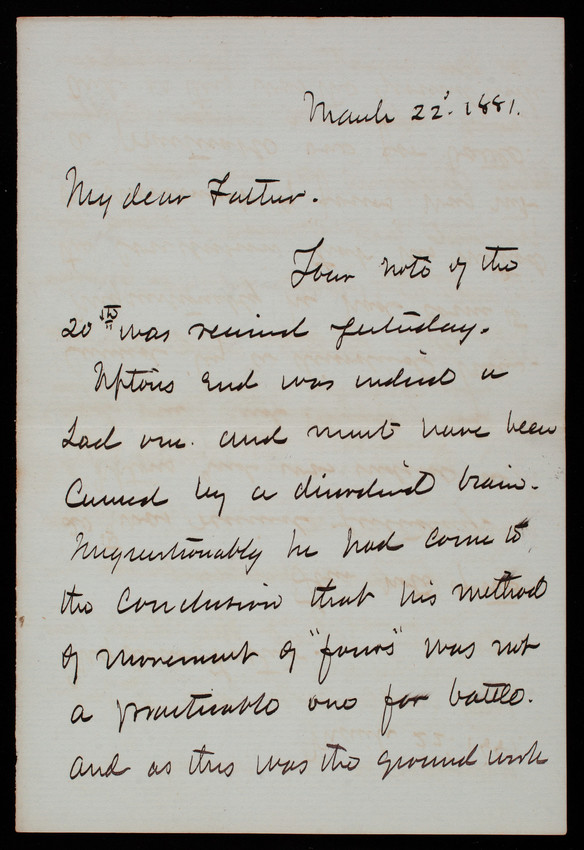 March 22d. 1881.
My dear Father.
Your note of the
20th was received yesterday.
Uptons end was indeed a
sad one. and must have been
caused by a disordered brain.
Unquestionably he had come to
the conclusion that his method
of movement of "fours" was not
a practicable one for battle.
and as this was the ground work